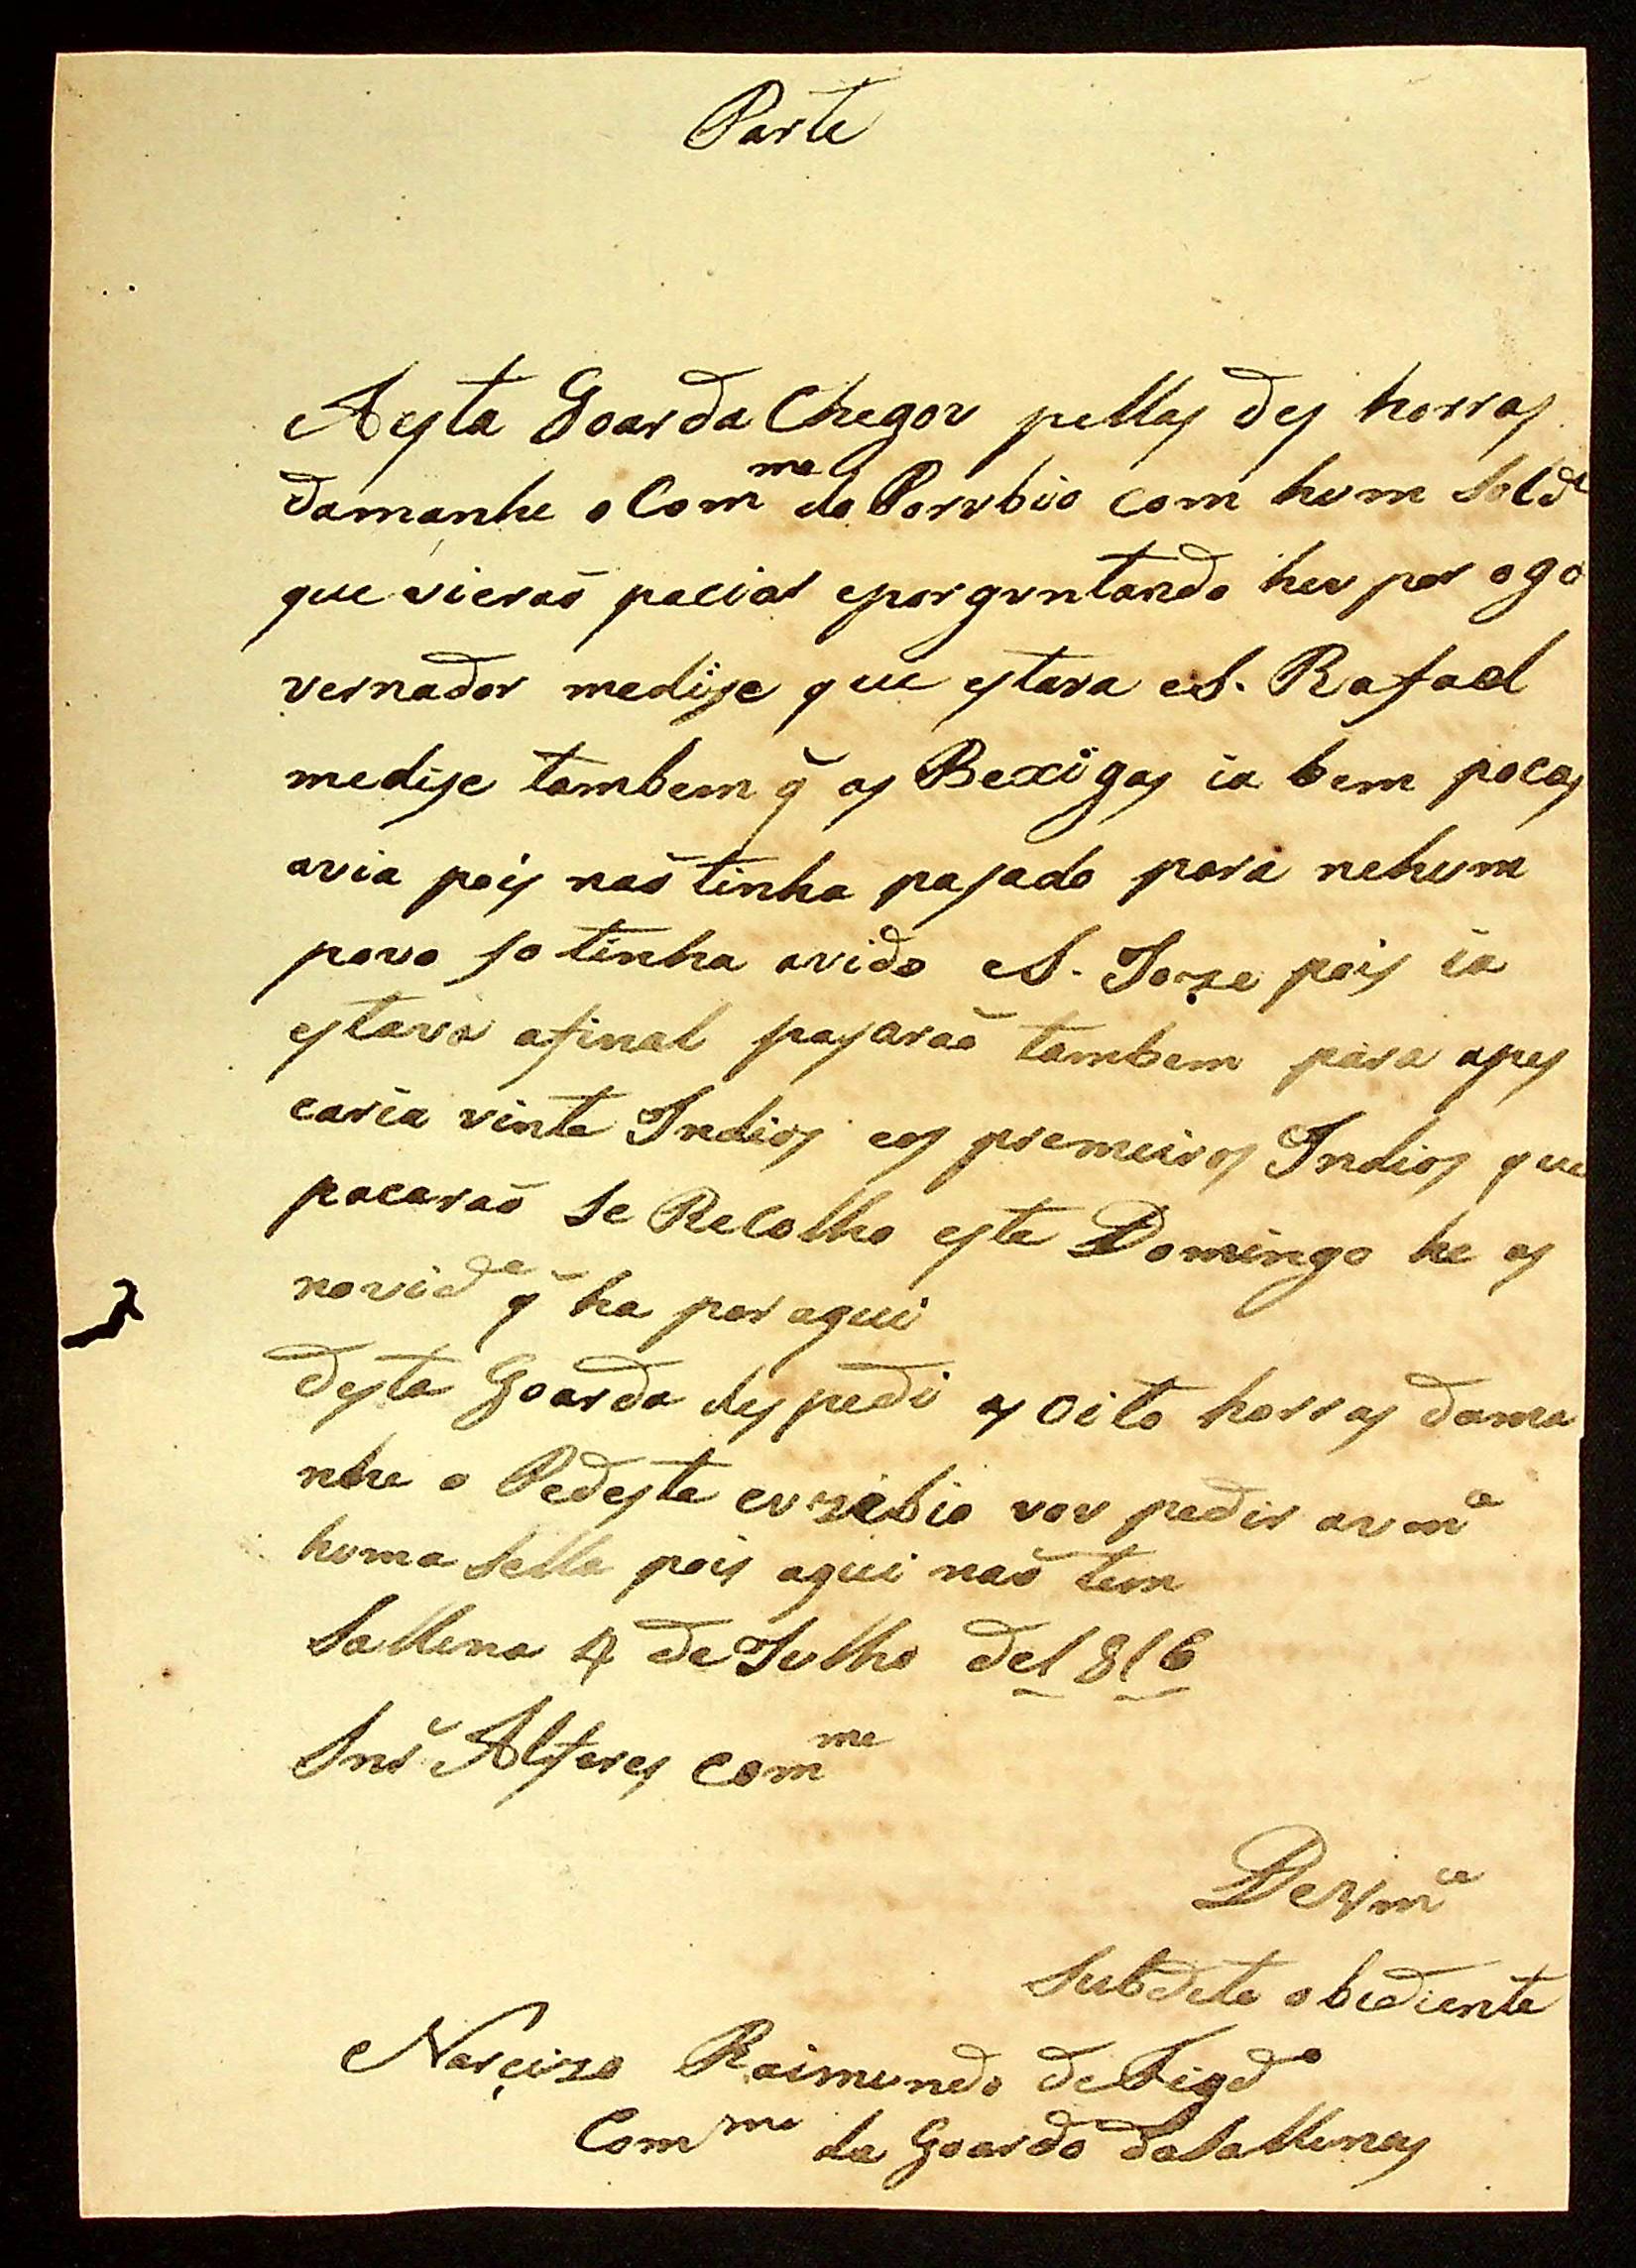 Parte
Aesta Goarda Chegou pellas des horras
damanhe o Com.me do Porubio com hum Sold.
que vierão paciar eporguntando heu por o go
vernador medise que estava eS. Rafael
medise tambem q̃ as Bexigas ia bem pocas
avia pois não tinha pasado para nehum
povo so tinha avido eS. Joze pois ia
estava afinal pasarão tambem para apes
caria vinte Indios eos premeiros Indios que
pacarão se Recolho este Domingo he as
novid.e q̃ ha por aqui
desta Goarda despedi as oito horras dama
nhe o Pedeste euzebio vou pedir avm.ce
huma Sella pois aqui não tem
Sallena 4 de Julho de1816
Snr̃ Alferes com.me
DeVm.ce
Subdeto obediente
Narcizo Raimundo de Figd.o
Com.me da Goarda daSallenas